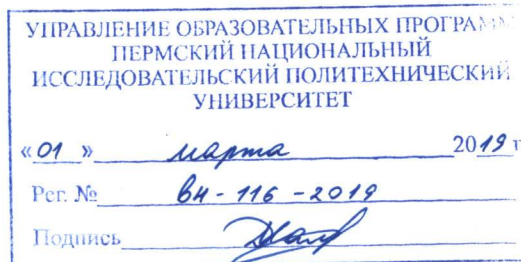 УПРАВЛЕНИЕ ОБРАЗОВАТЕЛЬНЫХ ПРОГРАММ
ПЕРМСКИЙ НАЦИОНАЛЬНЫЙ
ИССЛЕДОВАТЕЛЬСКИЙ ПОЛИТЕХНИЧЕСКИЙ
УНИВЕРСИТЕТ
«01» марта 2019 г
Рег. № вн-116-2019
Подпись